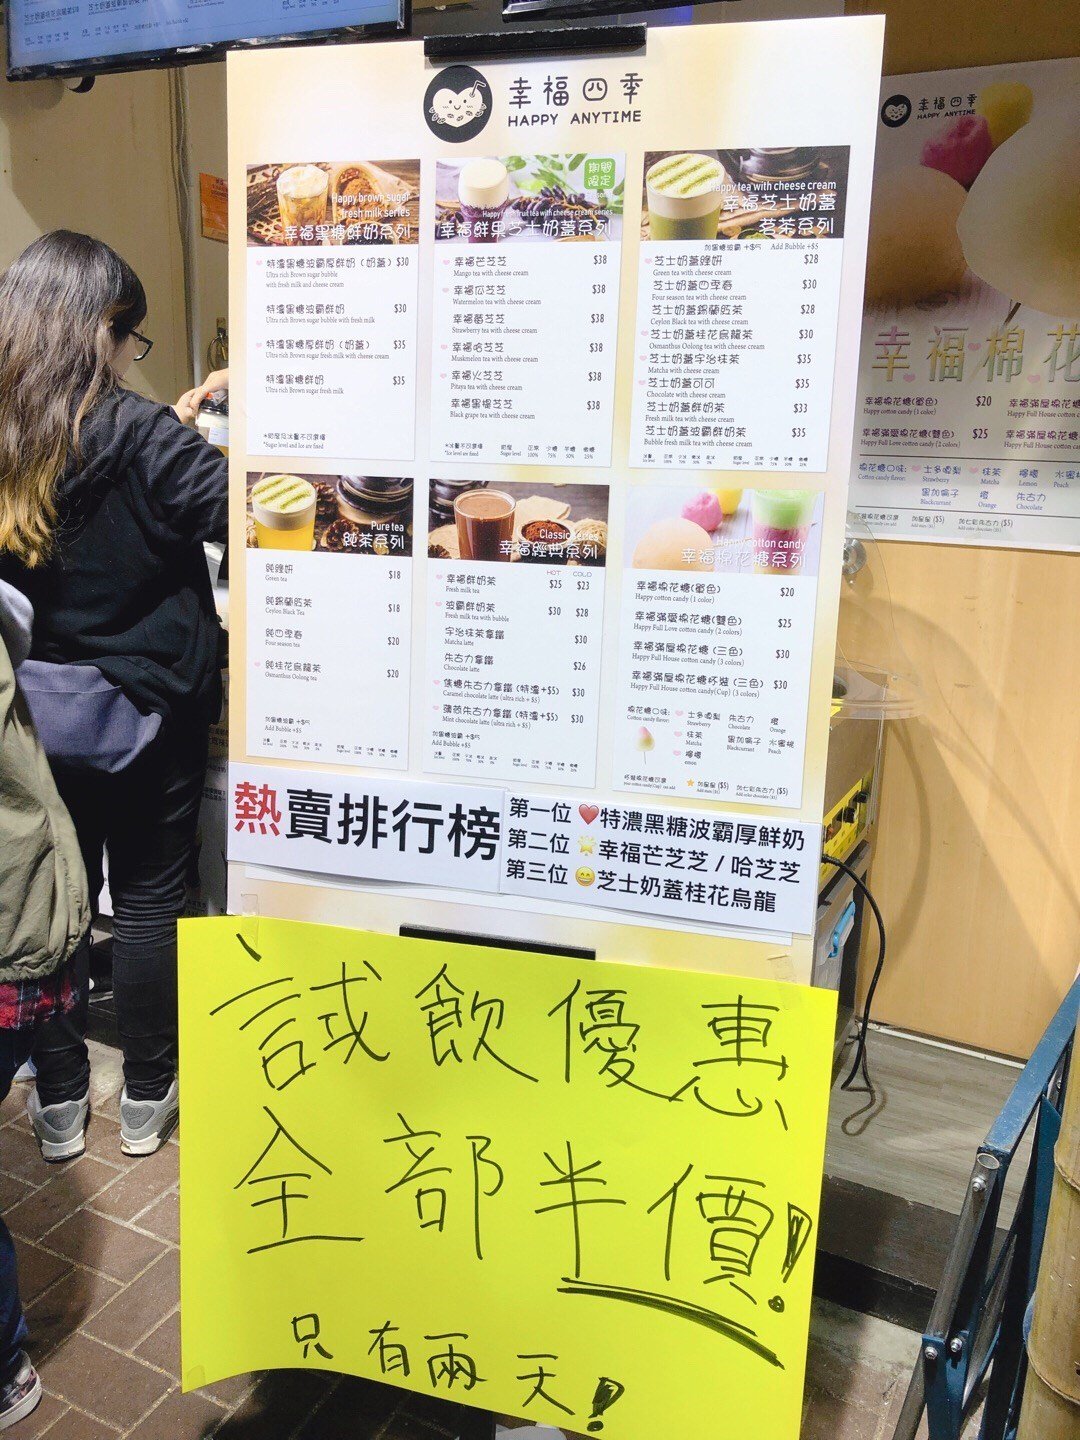 幸福四季
HAPPY ANYTIME
Happy brown sugar
fresh milk series
幸福黑糖鮮奶系列
特濃黑糖波霸厚鮮奶（奶蓋）$30
Ultra rich Brown sugar bubble
with fresh milk and cheese cream
特濃黑糖波霸鮮奶 $30
Ultra rich Brown sugar bubble with fresh milk
特濃黑糖厚鮮奶（奶蓋） $35
Ultra rich Brown sugar fresh milk with cheese cream
特濃黑糖鮮奶 $35
Ultra rich Brown sugar fresh milk
*Sugar level and Ice are fixed
期間
限定
Happy fresh fruit tea with cheese cream series
幸福鮮果芝士奶蓋系列
幸福芒芝芝 $38
Mango tea with cheese cream
幸福瓜芝芝 $38
Watermelon tea with cheese cream
幸福莓芝芝 $38
Strawberry tea with cheese cream
幸福哈芝芝 $38
Muskmelon tea with cheese cream
幸福火芝芝 $38
Pitaya tea with cheese cream
幸福黑提芝芝 $38
Black grape tea with cheese cream
*冰量不可選擇
*Ice level are fixed
Sugar level 100% 75% 50% 25%
Happy tea with cheese cream
幸福芝士奶蓋
茗茶系列
加黑糖波霸 +$5 Add Bubble +$5
芝士奶蓋綠妍 $28
Green tea with cheese cream
芝士奶蓋四季春 $30
Four season tea with cheese cream
芝士奶蓋錫蘭紅茶 $28
Ceylon Black tea with cheese cream
芝士奶蓋桂花烏龍茶 $30
Osmanthus Oolong tea with cheese cream
芝士奶蓋宇治抹茶 $35
Matcha with cheese cream
芝士奶蓋可可 $35
Chocolate with cheese cream
芝士奶蓋鮮奶茶 $33
Fresh milk tea with cheese cream
芝士奶蓋波霸鮮奶茶 $35
Bubble fresh milk tea with cheese cream
Pure tea
純茶系列
純綠妍 $18
Green tea
純錫蘭紅茶 $18
Ceylon Black Tea
純四季春 $20
Four season tea
純桂花烏龍茶 $20
Osmanthus Oolong tea
加黑糖波霸 +$5
Add Bubble +$5
Classic series
幸福經典系列
HOT COLD
幸福鮮奶茶 $25 $23
Fresh milk tea
波霸鮮奶茶 $30 $28
Fresh milk tea with bubble
宇治抹茶拿鐵 $30
Matcha latte
朱古力拿鐵 $26
Chocolate latte
焦糖朱古力拿鐵 (特濃+$5) $30
Caramel chocolate latte (ultra rich + $5)
薄荷朱古力拿鐵 (特濃+$5) $30
Mint chocolate latte (ultra rich + $5)
加黑糖波霸 +$5
Add Bubble +$5
Happy cotton candy
幸福棉花糖系列
幸福棉花糖(單色) $20
Happy cotton candy (1 color)
幸福滿愛棉花糖(雙色) $25
Happy Full Love cotton candy (2 colors)
幸福滿屋棉花糖 (三色) $30
Happy Full House cotton candy (3 colors)
幸福滿屋棉花糖杯裝 (三色) $30
Happy Full House cotton candy(Cup) (3 colors)
棉花糖口味: 士多啤梨 朱古力 橙
Cotton candy flavor: Strawberry Chocolate Orange
抹茶 黑加倫子 水蜜桃
Matcha Blackcurrant Peach
檸檬
熱賣排行榜
第一位 ❤️特濃黑糖波霸厚鮮奶
第二位 🌟幸福芒芝芝 / 哈芝芝
第三位 😄芝士奶蓋桂花烏龍
試飲優惠
全部半價!
只有兩天!
幸福四季
HAPPY ANYTIME
幸福棉花
幸福棉花糖(單色) $20
Happy cotton candy (1 color)
幸福滿愛棉花糖(雙色) $25
Happy Full Love cotton candy (2 colors)
幸福滿屋棉花糖
Happy Full House cotton
幸福滿屋棉花糖
Happy Full House cotton
棉花糖口味: 士多啤梨 抹茶 檸檬 水蜜桃
Cotton candy flavor: Strawberry Matcha Lemon Peach
黑加倫子 橙 朱古力
Blackcurrant Orange Chocolate
Panasonic